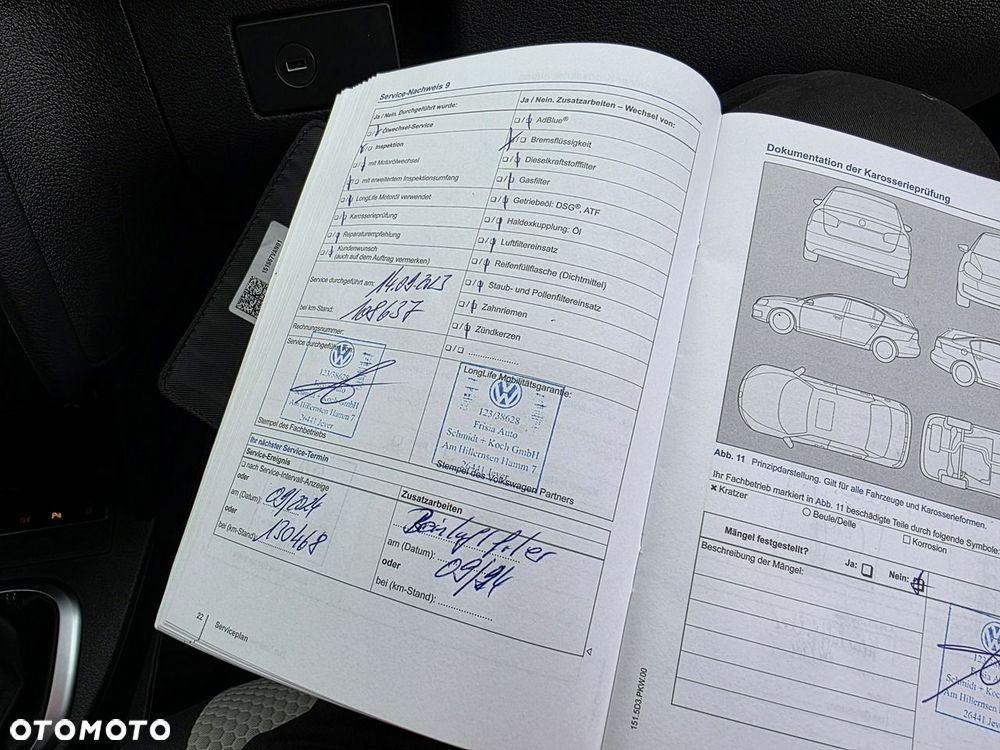 Service-Nachweis 9
Ja / Nein. Durchgeführt wurde:
Ölwechsel-Service
Inspektion
mit Motorölwechsel
mit erweitertem Inspektionsumfang
LongLife Motoröl verwendet
Karosserieprüfung
Reparaturempfehlung
Kundenwunsch
(auch auf dem Auftrag vermerken)
Service durchgeführt am:
bei km-Stand: 108637
Rechnungsnummer:
Service durchgeführt von:
123/38628
Frisia Auto
Schmidt + Koch GmbH
Am Hillernsen Hamm 7
26441 Jever
Stempel des Fachbetriebs
Ja / Nein. Zusatzarbeiten – Wechsel von:
AdBlue®
Bremsflüssigkeit
Dieselkraftstofffilter
Gasfilter
Getriebeöl: DSG®, ATF
Haldexkupplung: Öl
Luftfiltereinsatz
Reifenfüllflasche (Dichtmittel)
Staub- und Pollenfiltereinsatz
Zahnriemen
Zündkerzen
LongLife Mobilitätsgarantie:
123/38628
Frisia Auto
Schmidt + Koch GmbH
Am Hillernsen Hamm 7
26441 Jever
Stempel des Volkswagen Partners
Ihr nächster Service-Termin
Service-Ereignis
nach Service-Intervall-Anzeige
oder
am (Datum): 09/2024
oder
bei (km-Stand): 130468
Zusatzarbeiten
am (Datum): 09/24
oder
bei (km-Stand):
22
Serviceplan
Dokumentation der Karosserieprüfung
Abb. 11 Prinzipdarstellung. Gilt für alle Fahrzeuge und Karosserieformen.
Ihr Fachbetrieb markiert in Abb. 11 beschädigte Teile durch folgende Symbole:
Kratzer
Beule/Delle
Korrosion
Mängel festgestellt? Ja: Nein:
Beschreibung der Mängel:
Schmidt + Ko
Am Hillernsen
26441 Jev
151.5D3.PKW.00
OTOMOTO